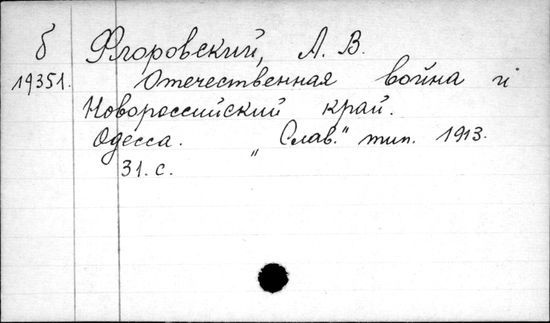 б Флоровский, А. В.
19351. Отечественная война и
Новороссийский край.
Одесса. "Слав." тип. 1913.
31. с.